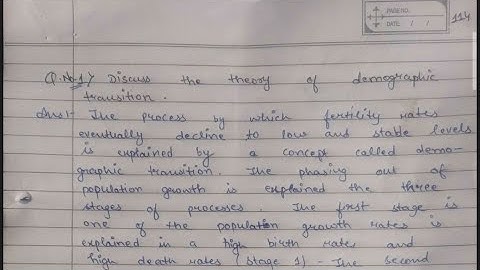 PAGE NO.
DATE / /
114
Q.No.1) Discuss the theory of demographic
transition.
Ans:- The process by which fertility rates
eventually decline to low and stable levels
is explained by a concept called demo-
graphic transition. The phasing out of
population growth is explained the three
stages of processes. The first stage is
one of the population growth rates is
explained in a high birth rates and
high death rates (stage 1) - The second